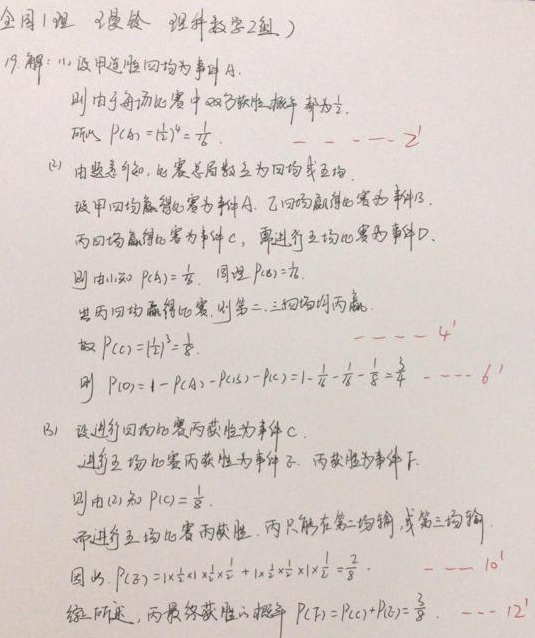 全国1理 理科数学2组)
19.解:(1)设甲连胜四场为事件A.
则由于每场比赛中双方获胜概率都为1/2.
所以 P(A)=(1/2)⁴=1/16. ----2'
(2) 由题意可知,比赛总局数应为四场或五场.
设甲四场赢得比赛为事件A.乙四场赢得比赛为事件B.
丙四场赢得比赛为事件C,需进行五场比赛为事件D.
则由(1)知 P(A)=1/16. 同理P(B)=1/16.
当丙四场赢得比赛.则第二.三.四场均丙赢.
故 P(C)=(1/2)³=1/8. ----4'
则 P(D)=1-P(A)-P(B)-P(C)=1-1/16-1/16-1/8=3/4 ----6'
(3) 设进行四场比赛丙获胜为事件C.
进行五场比赛丙获胜为事件E. 丙获胜为事件F.
则由(2)知 P(C)=1/8.
而进行五场比赛丙获胜.丙只能在第二场输,或第三场输
因此.P(E)=1×1/2×1×1/2×1/2+1×1/2×1/2×1×1/2=2/8. ---10'
综上所述,丙最终获胜的概率 P(F)=P(C)+P(E)=3/8. ---12'